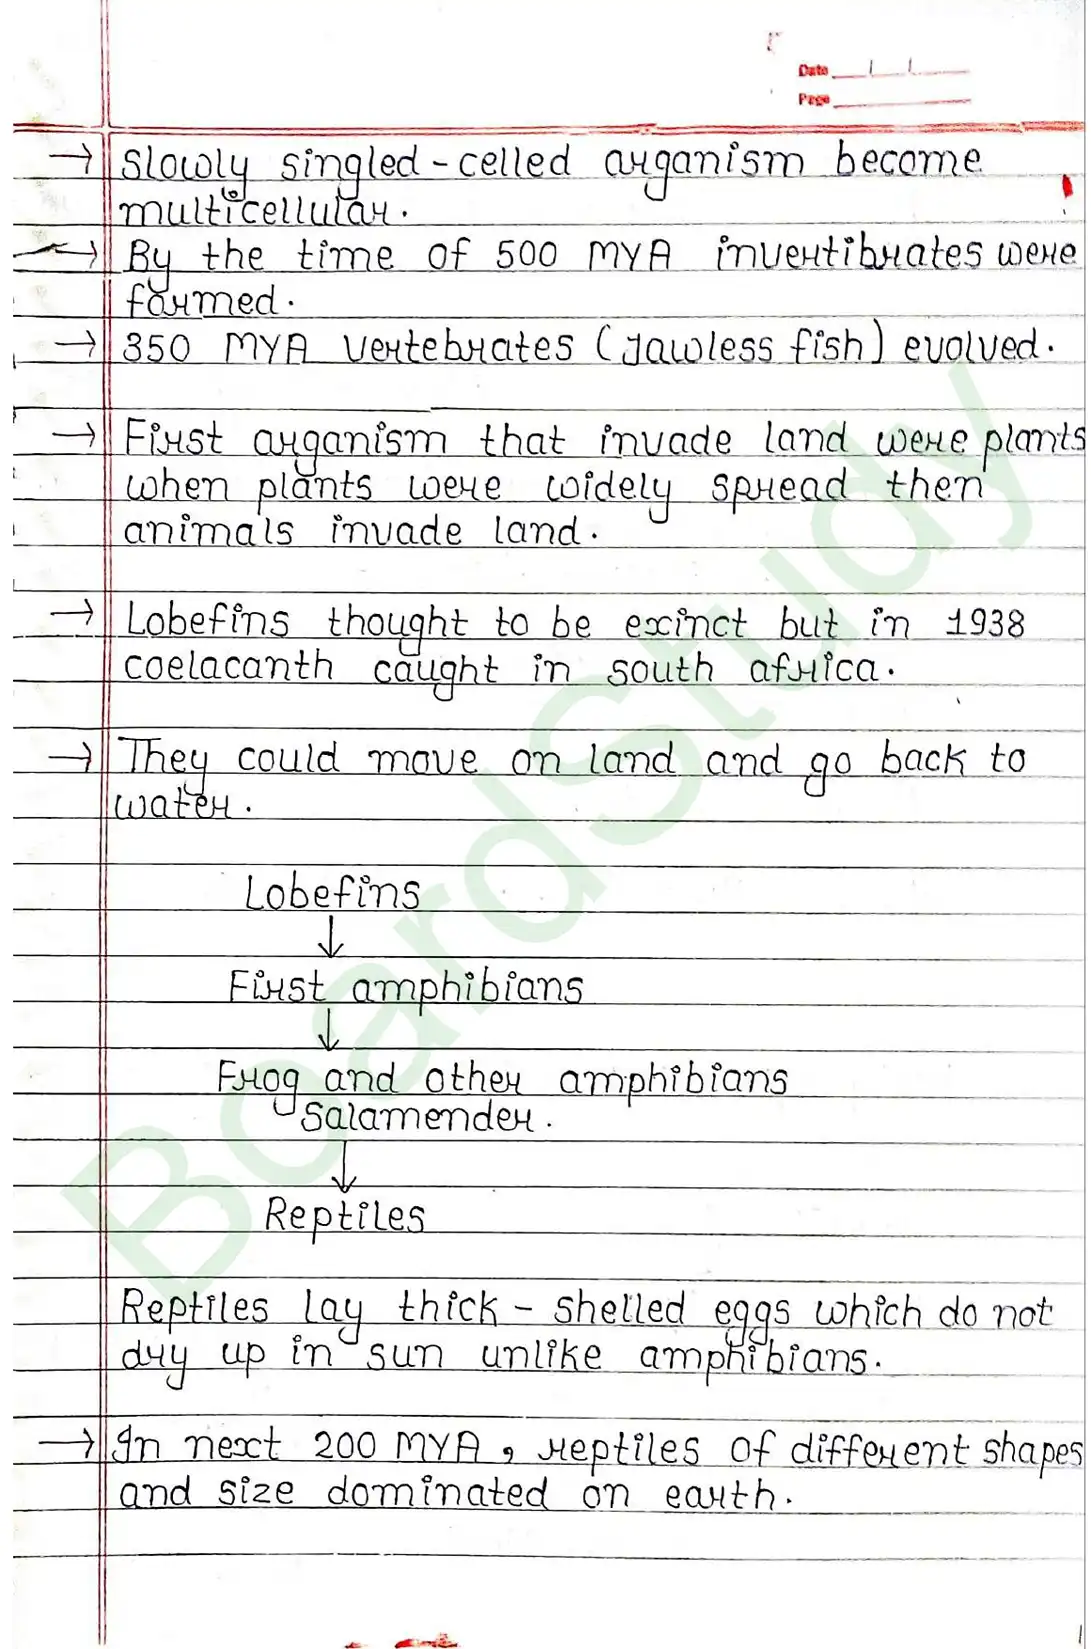 Date
Page
→ Slowly singled-celled organism become
multicellular.
→ By the time of 500 MYA invertibrates were
formed.
→ 350 MYA vertebrates (Jawless fish) evolved.
→ First organism that invade land were plants
when plants were widely spread then
animals invade land.
→ Lobefins thought to be exinct but in 1938
coelacanth caught in south africa.
→ They could move on land and go back to
water.
Lobefins
↓
First amphibians
↓
Frog and other amphibians
Salamender.
↓
Reptiles
Reptiles lay thick - shelled eggs which do not
dry up in sun unlike amphibians.
→ In next 200 MYA, reptiles of different shapes
and size dominated on earth.
BoardStudy